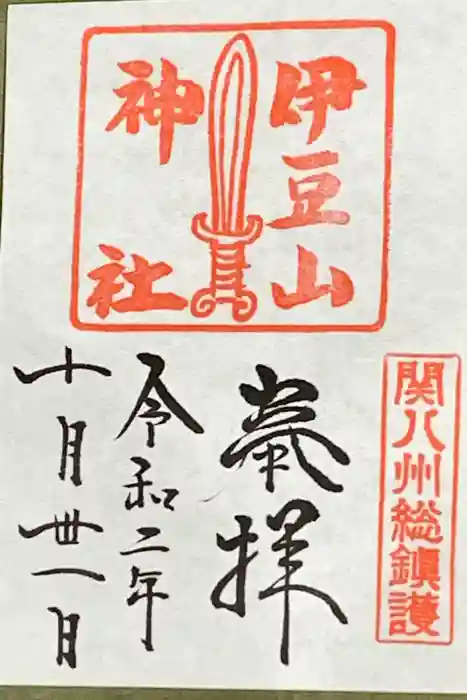 伊豆山
神社
関八州総鎮護
奉拝
令和二年
十月卅一日